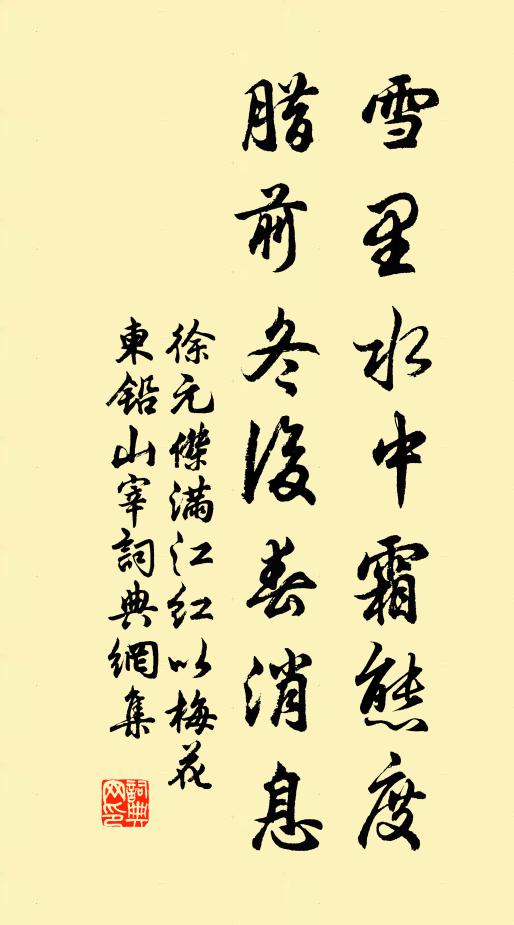 雪里水中霜態度
腊前冬後春消息
徐元傑满江红以梅花
東鉛山宰詞典網集
詞典网印